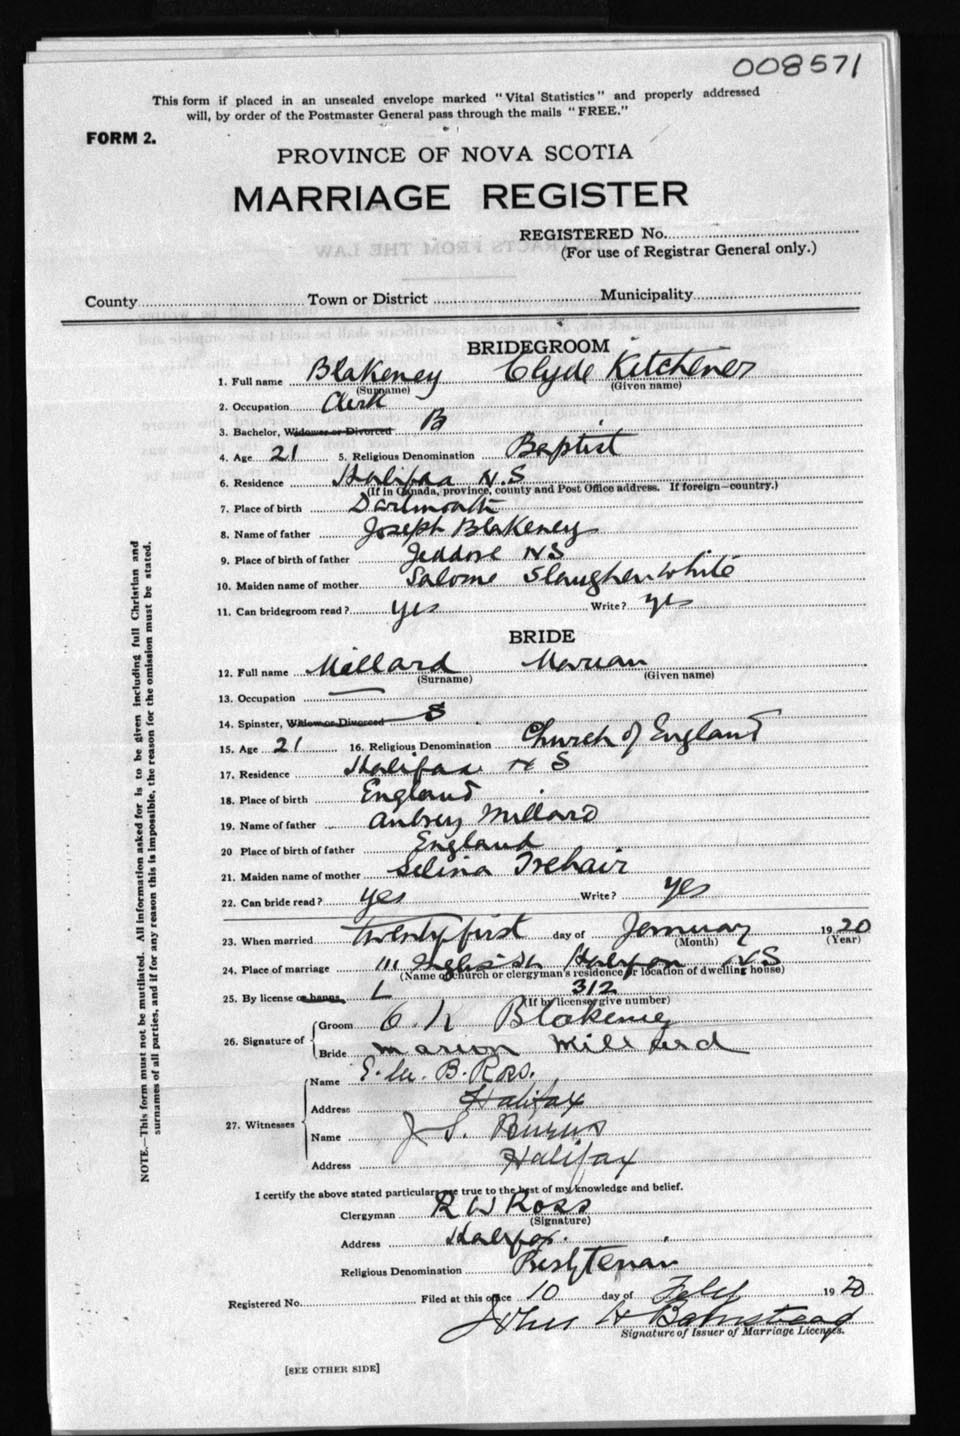 008571
This form if placed in an unsealed envelope marked "Vital Statistics" and properly addressed
will, by order of the Postmaster General pass through the mails "FREE."
FORM 2.
PROVINCE OF NOVA SCOTIA
MARRIAGE REGISTER
REGISTERED No.
(For use of Registrar General only.)
County Town or District Municipality
BRIDEGROOM
1. Full name Blakeney Clyde Kitchener
(Surname) (Given name)
2. Occupation Clerk
3. Bachelor, Widower or Divorced B
4. Age 21 5. Religious Denomination Baptist
6. Residence Halifax N.S
(If in Canada, province, county and Post Office address. If foreign—country.)
7. Place of birth Dartmouth
8. Name of father Joseph Blakeney
9. Place of birth of father Jeddore NS
10. Maiden name of mother Salome Slaughenwhite
11. Can bridegroom read? yes Write? yes
BRIDE
12. Full name Millard Marian
(Surname) (Given name)
13. Occupation —
14. Spinster, Widow or Divorced S
15. Age 21 16. Religious Denomination Church of England
17. Residence Halifax N S
18. Place of birth England
19. Name of father Aubrey Millard
20 Place of birth of father England
21. Maiden name of mother Selina Trehair
22. Can bride read? yes Write? yes
23. When married twenty first day of January 1920
(Month) (Year)
24. Place of marriage Halifax NS
(Name of church or clergyman's residence or location of dwelling house)
25. By license or banns L 312
(If by license give number)
26. Signature of Groom C K Blakeney
Bride Marion Millard
27. Witnesses Name B. Ross.
Address Halifax
Name J S. Burns
Address Halifax
I certify the above stated particulars are true to the best of my knowledge and belief.
Clergyman R W Ross
(Signature)
Address Halifax.
Religious Denomination Presbyterian
Registered No. Filed at this office 10 day of Feby 1920
John H Barnstead
Signature of Issuer of Marriage Licenses.
[SEE OTHER SIDE]
NOTE.—This form must not be mutilated. All information asked for is to be given including full Christian and
surnames of all parties, and if for any reason this is impossible, the reason for the omission must be stated.